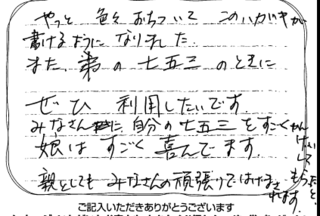 やっと 色々おちついて このハガキが
書けるようになりました。
また、弟の七五三のときに
ぜひ 利用したいです。
みなさんに、自分の七五三をすごくかんけいしてもらったと
娘はすごく喜んでます。
親としてもみなさんの頑張りではげまされます。
ご記入いただきありがとうございます